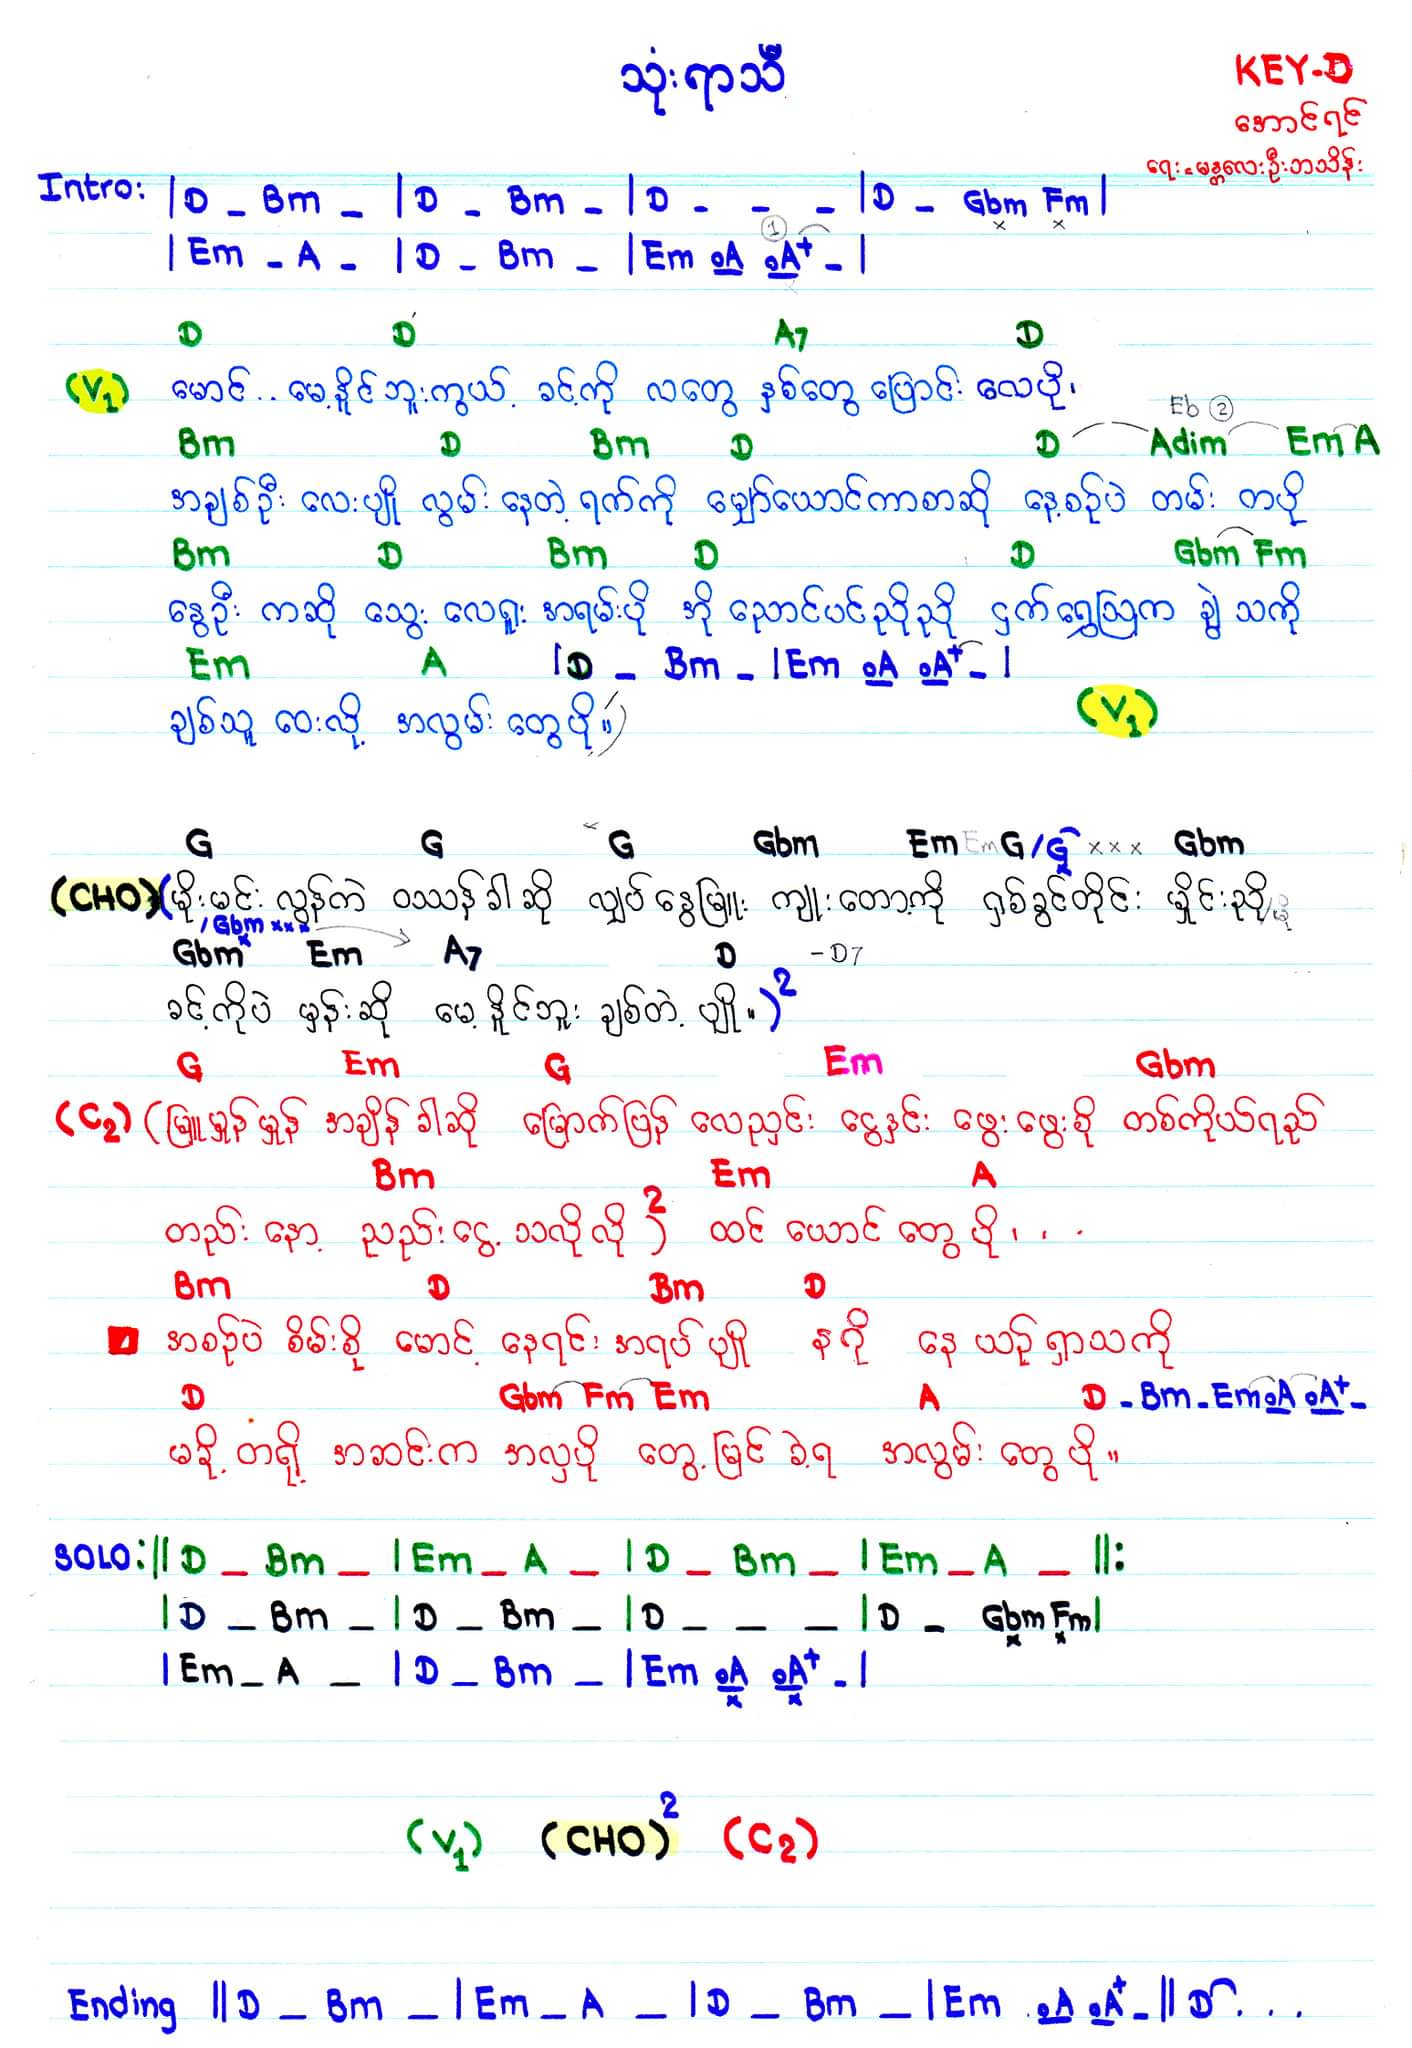 သုံးရာသီ
KEY-D
အောင်ရင်
ရေး - မန္တလေးဦးဘသိန်း
Intro: |D _ Bm _ |D _ Bm _ |D - - _ |D _ Gbm Fm|
x x
1
|Em - A - |D - Bm - |Em oA oA+ - |
D D A7 D
(V1) မောင်.. မေ့နိုင်ဘူးကွယ့် ခင့်ကို လတွေ နှစ်တွေ ပြောင်း လေပို၊
Eb 2
Bm D Bm D D Adim Em A
အချစ်ဦး လေးပျို လွမ်း နေတဲ့ ရက်ကို မျှော်ယောင်ကာစာဆို နေ့စဉ်ပဲ တမ်း တပို
Bm D Bm D D Gbm Fm
နွေဦး ကဆို သွေး လေရူး အရမ်းပို အို ညောင်ပင်ညိုညို ငှက်ရွှေဩက ချွဲ သကို
Em A |D _ Bm - |Em oA oA+ - |
ချစ်သူ ဝေးလို့ အလွမ်း တွေပို။) (V1)
G G G Gbm Em Em G /G xxx Gbm
(CHO) (မိုးမင်း လွန်ကဲ ဝဿန်ခါဆို လျှပ်နွေမြူး ကျူးတော့ကို ရှစ်ခွင်တိုင်း မှိုင်းညို့
/Gbm xxx
Gbm Em A7 D -D7
ခင့်ကိုပဲ မှန်းဆို မေ့နိုင်ဘူး ချစ်တဲ့ ပျို။)2
G Em G Em Gbm
(C2) (မြူမှုန်မှုန် အချိန်ခါဆို မြောက်ပြန် လေညှင်း ငွေနှင်း ဖွေးဖွေးစို တစ်ကိုယ်ရည်
Bm Em A
တည်း နော့ ညည်းငွေ့ သလိုလို)2 ထင် ယောင် တွေ ပို၊ . .
Bm D Bm D
အစဉ်ပဲ စိမ်းစို မောင့် နေရင်း အရပ် ပျို နဂို နေ ယဉ် ရှာသကို
D Gbm Fm Em A D - Bm - Em oA oA+ -
မခို့ တရို့ အဆင်းက အလှပို တွေ့မြင် ခဲ့ရ အလွမ်း တွေ ပို။
SOLO:|| D _ Bm _ |Em _ A _ |D _ Bm _ |Em _ A _ ||:
|D _ Bm _ |D _ Bm _ |D _ _ _ |D - Gbm Fm|
x x
|Em _ A _ |D _ Bm _ |Em oA oA+ - |
x x
(V1) (CHO)2 (C2)
Ending ||D _ Bm _ |Em _ A _ |D _ Bm _ |Em oA oA+ - || D . . .